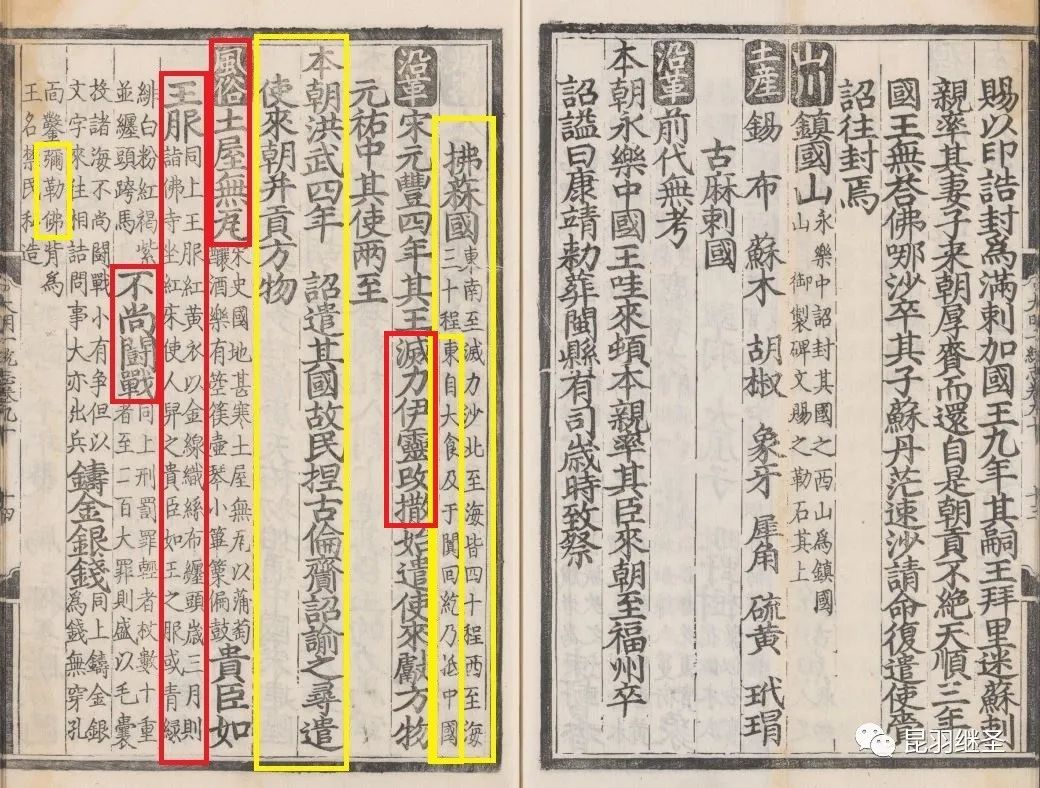 賜以印誥封爲滿剌加國王九年其嗣王拜里迷蘇剌
親率其妻子来朝厚賚而還自是朝貢不絶天順三年
國王無荅佛哪沙卒其子蘇丹茫速沙請命復遣使賫
詔往封焉
山川 鎮國山 永樂中詔封其國之西山爲鎮國
山御製碑文賜之勒石其上
土産 錫 布 蘇木 胡椒 象牙 犀角 硫黄 玳瑁
古麻剌國
沿革 前代無考
本朝永樂中國王哇來頓本親率其臣來朝至福州卒
詔謚曰康靖勑葬閩縣有司歳時致祭
拂菻國 東南至滅力沙北至海皆四十程西至海
三十程東自大食及于闐回紇乃㡳中國
沿革 宋元豐四年其王滅力伊靈改撒始遣使來獻方物
元祐中其使兩至
本朝洪武四年 詔遣其國故民捏古倫齎詔諭之尋遣
使來朝并貢方物
風俗 土屋無瓦 宋史國地甚寒土屋無瓦以蒲萄
釀酒樂有箜篌壺琴小篳篥偏鼓 貴臣如
王服 同上王服紅黄衣以金線織絲布纏頭歳三月則
詣佛寺坐紅床使人舁之貴臣如王之服或青緑
緋白粉紅褐紫
並纏頭跨馬 不尚鬪戰 同上刑罰罪輕者杖數十重
者至二百大罪則盛以毛囊
投諸海不尚鬪戰小有争但以
文字來往相詰問事大亦出兵 鑄金銀錢 同上鑄金銀
爲錢無穿孔
面鑿彌勒佛背爲
王名禁民私造
大明一統志卷九十
十四
昆羽继圣